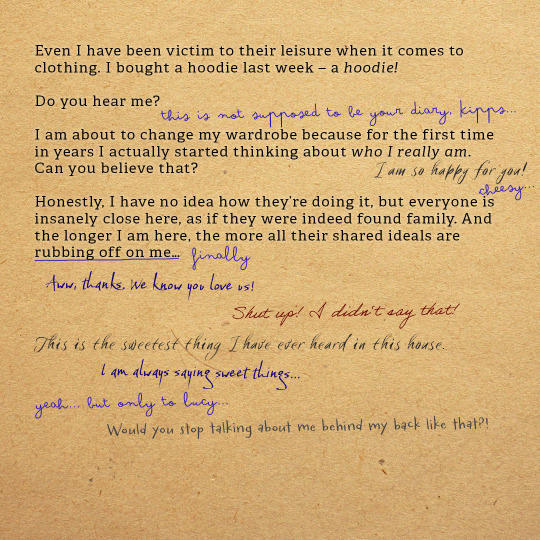 Even I have been victim to their leisure when it comes to
clothing. I bought a hoodie last week – a hoodie!
Do you hear me?
this is not supposed to be your diary, kipps...
I am about to change my wardrobe because for the first time
in years I actually started thinking about who I really am.
Can you believe that?
I am so happy for you!
cheesy...
Honestly, I have no idea how they're doing it, but everyone is
insanely close here, as if they were indeed found family. And
the longer I am here, the more all their shared ideals are
rubbing off on me...
finally
Aww, thanks, We know you love us!
Shut up! I didn't say that!
This is the sweetest thing I have ever heard in this house.
I am always saying sweet things...
yeah... but only to lucy...
Would you stop talking about me behind my back like that?!